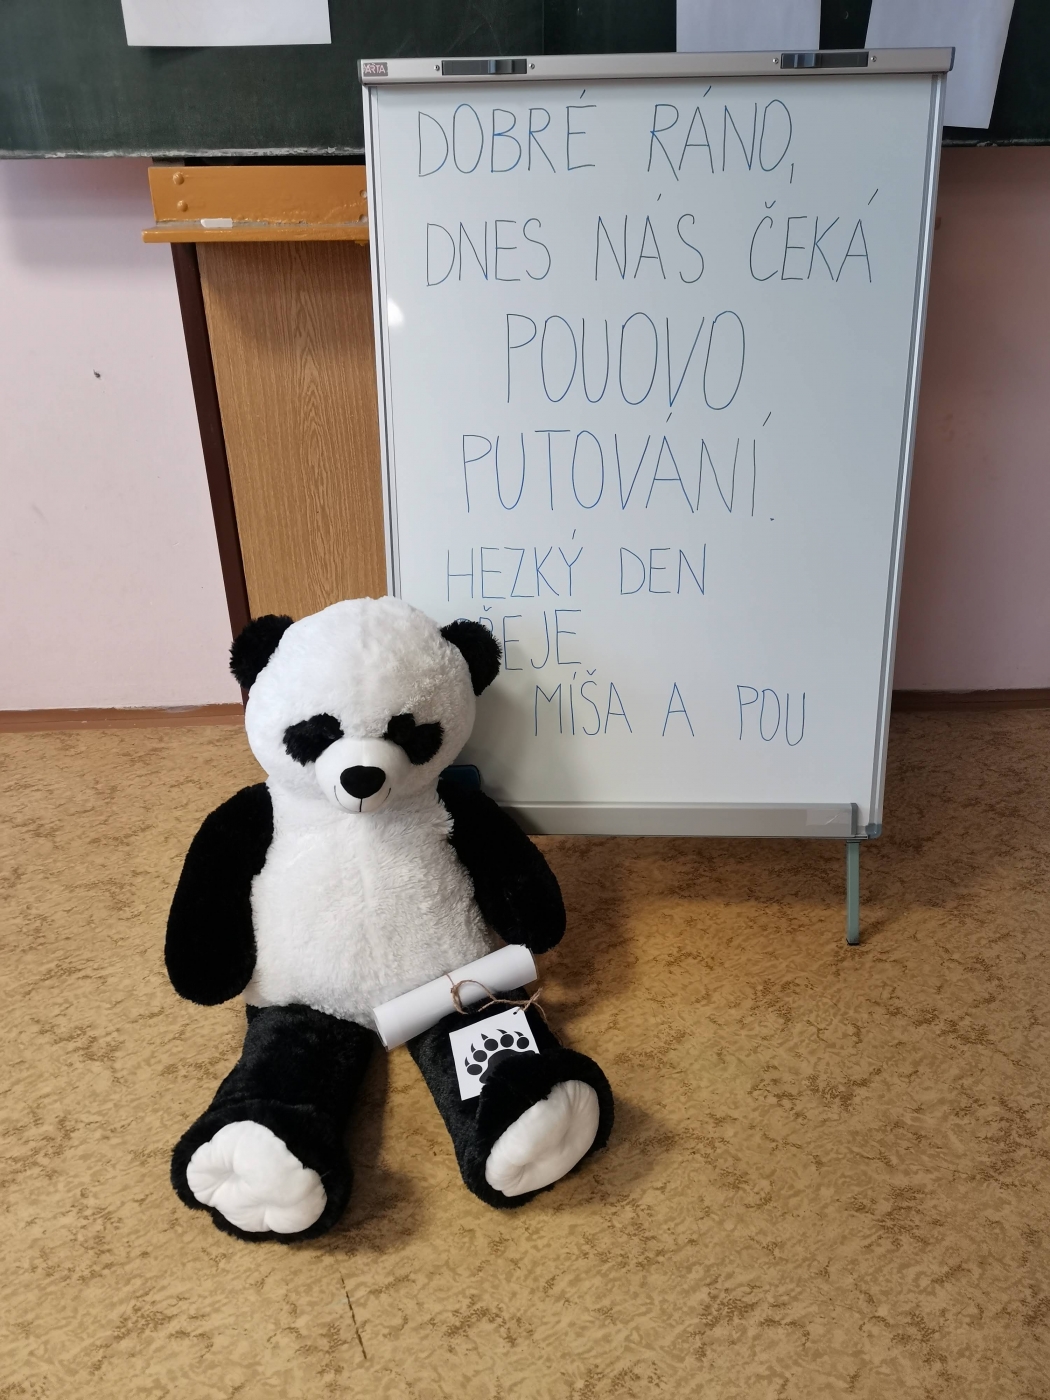 ARTA
DOBRÉ RÁNO,
DNES NÁS ČEKÁ
POUOVO
PUTOVÁNÍ.
HEZKÝ DEN
PŘEJE
MÍŠA A POU